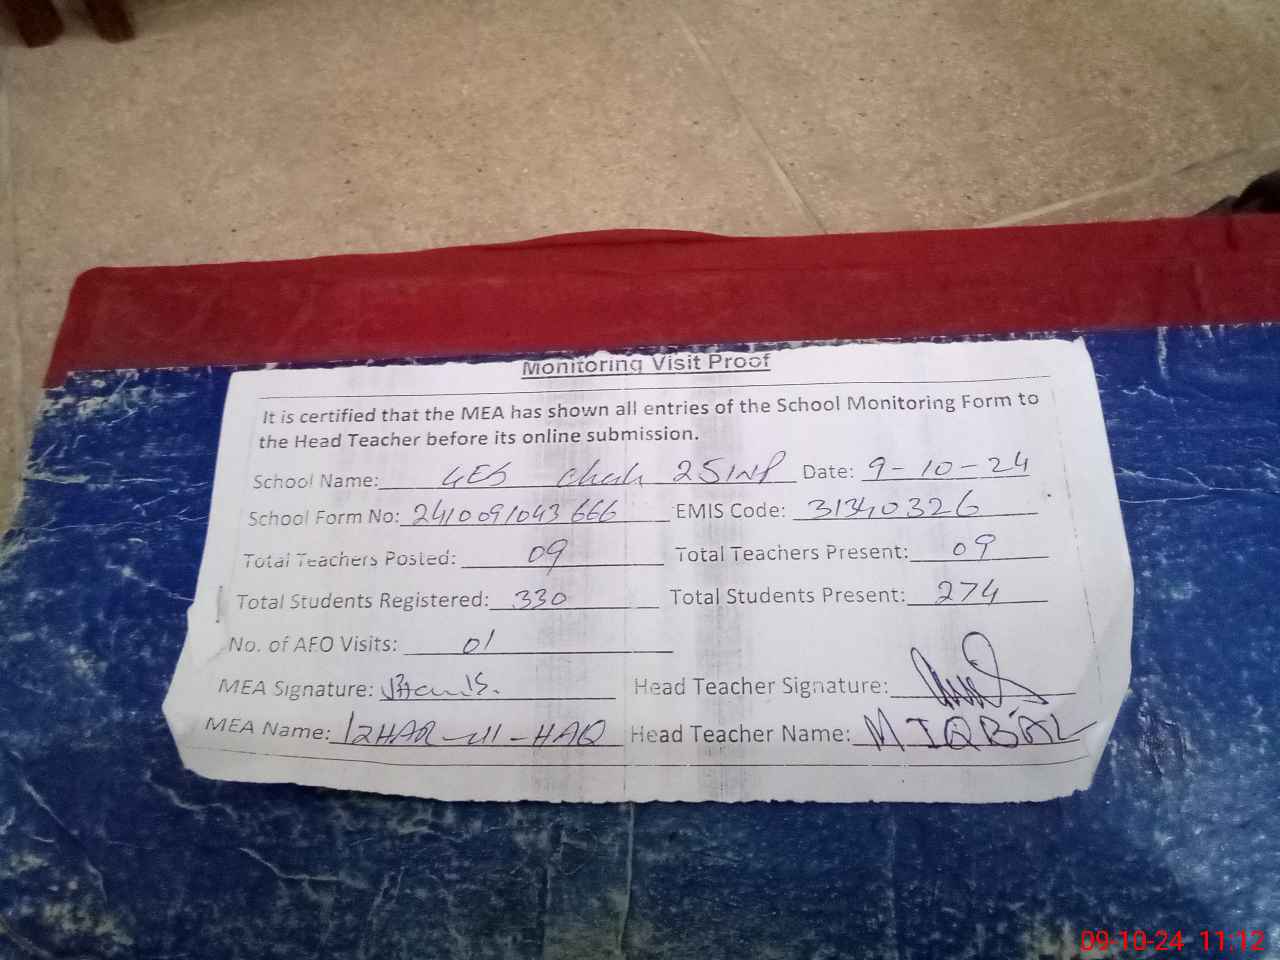 Monitoring Visit Proof
It is certified that the MEA has shown all entries of the School Monitoring Form to
the Head Teacher before its online submission.
School Name: GES Chak 25 1NP Date: 9-10-24
School Form No: 2410091043666 EMIS Code: 31340326
Total Teachers Posted: 09 Total Teachers Present: 09
Total Students Registered: 330 Total Students Present: 274
No. of AEO Visits: 01
MEA Signature: Head Teacher Signature:
MEA Name: IZHAR-UL-HAQ Head Teacher Name: M IQBAL
09-10-24 11:12